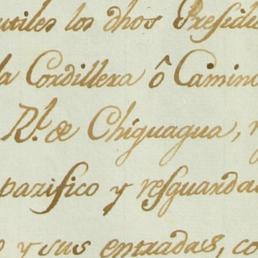 utiles los dhos Presidi
la Cordillera ô Camino
Rl. de Chiguagua,
pazifico y resguarda
y sus entradas, co